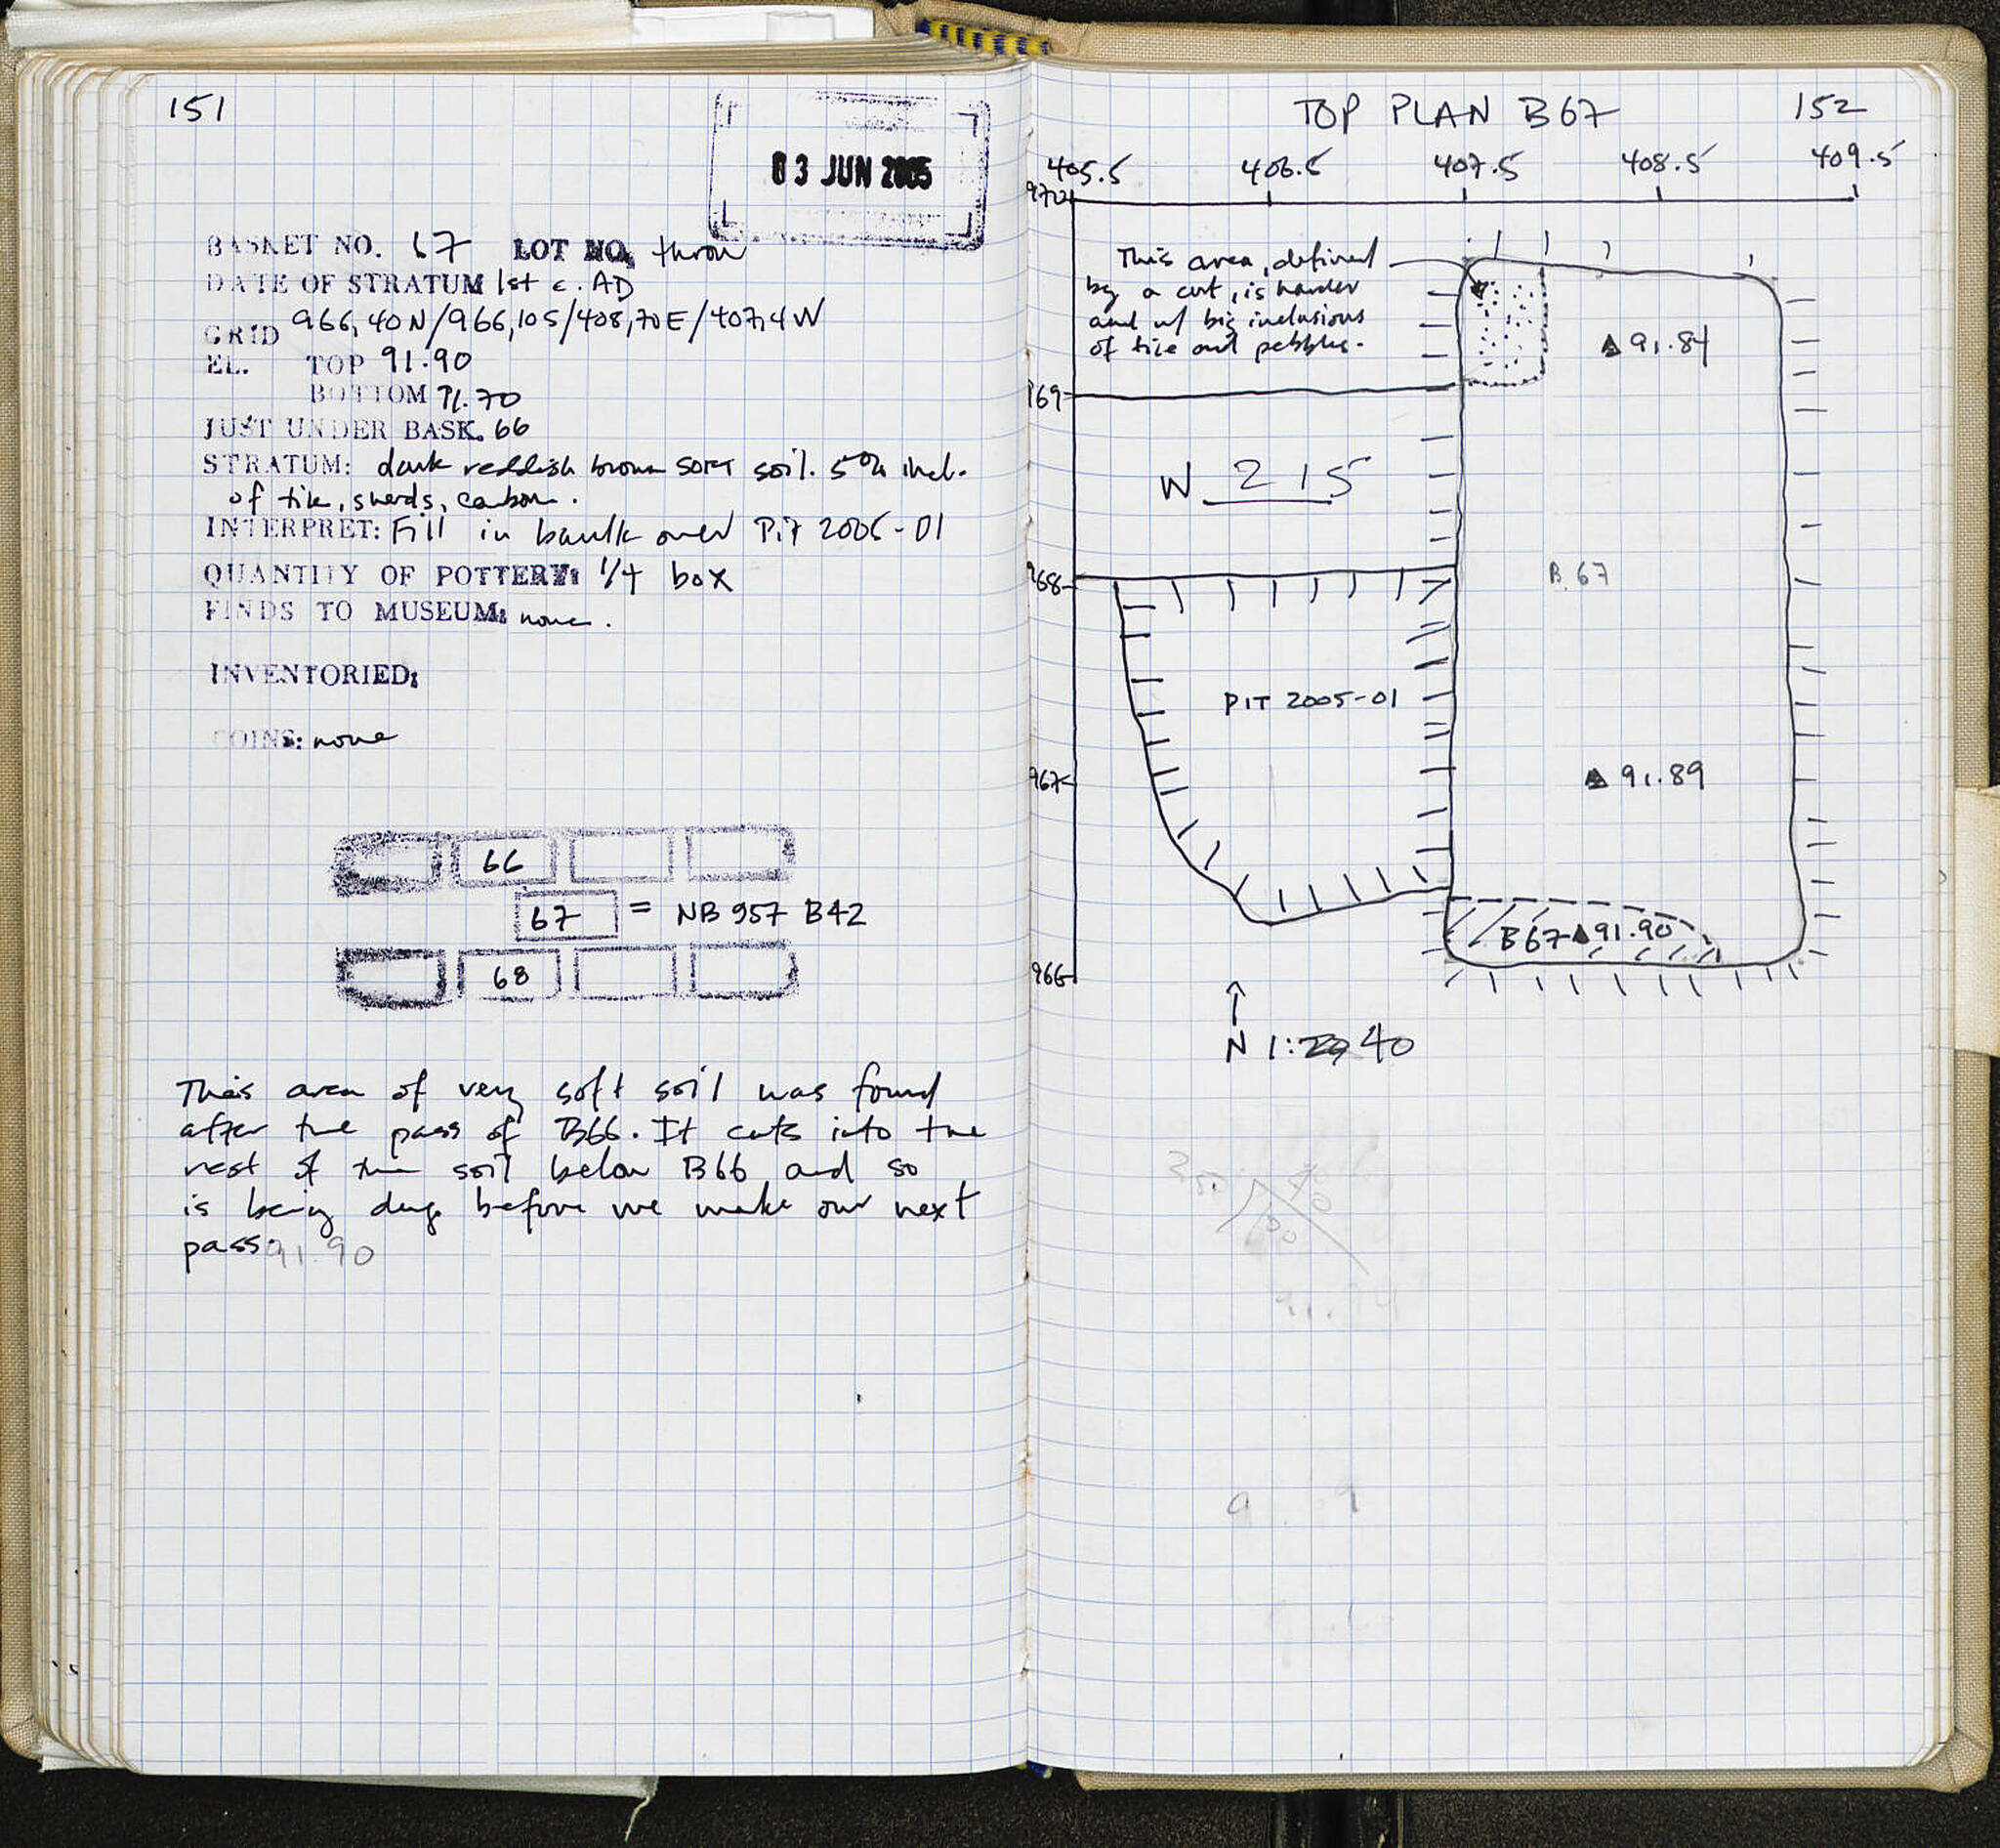 151
03 JUN 2005
BASKET NO. 67 LOT NO. throw
DATE OF STRATUM 1st c. AD
GRID 966,40N/966,10S/408,70E/407,4W
EL. TOP 91.90
BOTTOM 91.70
JUST UNDER BASK. 66
STRATUM: dark reddish brown SOFT soil. 5% incl.
of tile, sherds, carbon.
INTERPRET: Fill in baulk over Pit 2005-01
QUANTITY OF POTTERY: 1/4 box
FINDS TO MUSEUM: none.
INVENTORIED:
COINS: none
66
67 = NB 957 B42
68
This area of very soft soil was found
after the pass of B66. It cuts into the
rest of the soil below B66 and so
is being dug before we make our next
pass. 91.90
TOP PLAN B67 152
405.5 406.5 407.5 408.5 409.5
970
This area, defined
by a cut, is harder
and w/ big inclusions
of tile and pebbles.
91.84
969
W 215
968
B 67
PIT 2005-01
967
91.89
B67 91.90
966
N 1:40